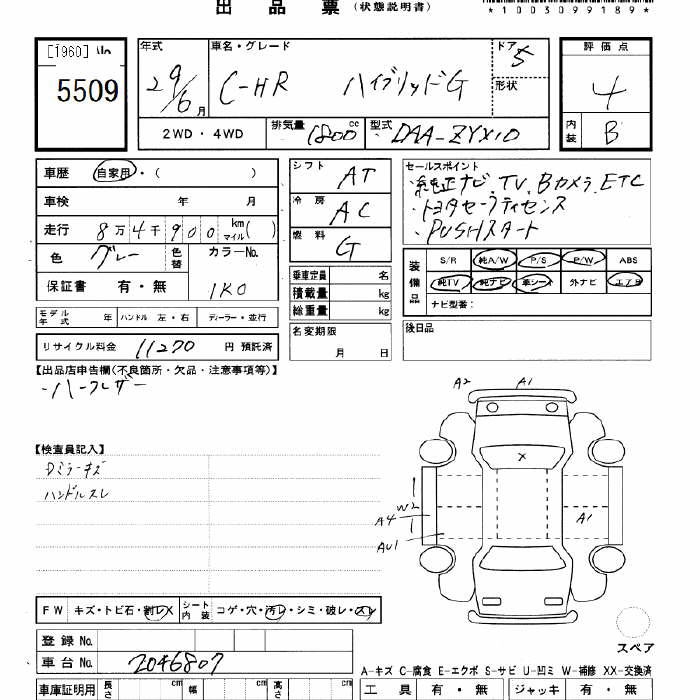 出品票（状態説明書）
*1003099189*
[1960]
5509
年式 29/6月
車名・グレード C-HR ハイブリッドG
ドア 5
形状
評価点 4
内装 B
2WD・4WD 排気量 1800cc 型式 DAA-ZYX10
車歴 自家用・（ ）
シフト AT
セールスポイント
・純正ナビ.TV.Bカメラ.ETC
・トヨタセーフティセンス
・PUSHスタート
車検 年 月
冷房 AC
走行 8万4千900 km マイル( )
燃料 G
色 グレー 色替 カラーNo. 1K0
保証書 有・無
乗車定員 名
積載量 kg
総重量 kg
装備品 S/R 純A/W P/S P/W ABS
純TV 純ナビ 革シート 外ナビ エアB
ナビ型番：
モデル年式 年 ハンドル 左・右 ディーラー・並行
名変期限 月 日
後日品
リサイクル料金 11270 円 預託済
【出品店申告欄(不良箇所・欠品・注意事項等)】
・ハーフレザー
A2 A1
【検査員記入】
Dミラーキズ
ハンドルスレ
X
W2
A4
A1
AU1
FW キズ・トビ石・割レX シート内装 コゲ・穴・汚レ・シミ・破レ・スレ
登録No.
車台No. 2046807
スペア
A-キズ C-腐食 E-エクボ S-サビ U-凹ミ W-補修 XX-交換済
車庫証明用 長さ cm 幅 cm 高さ cm
工具 有・無 ジャッキ 有・無